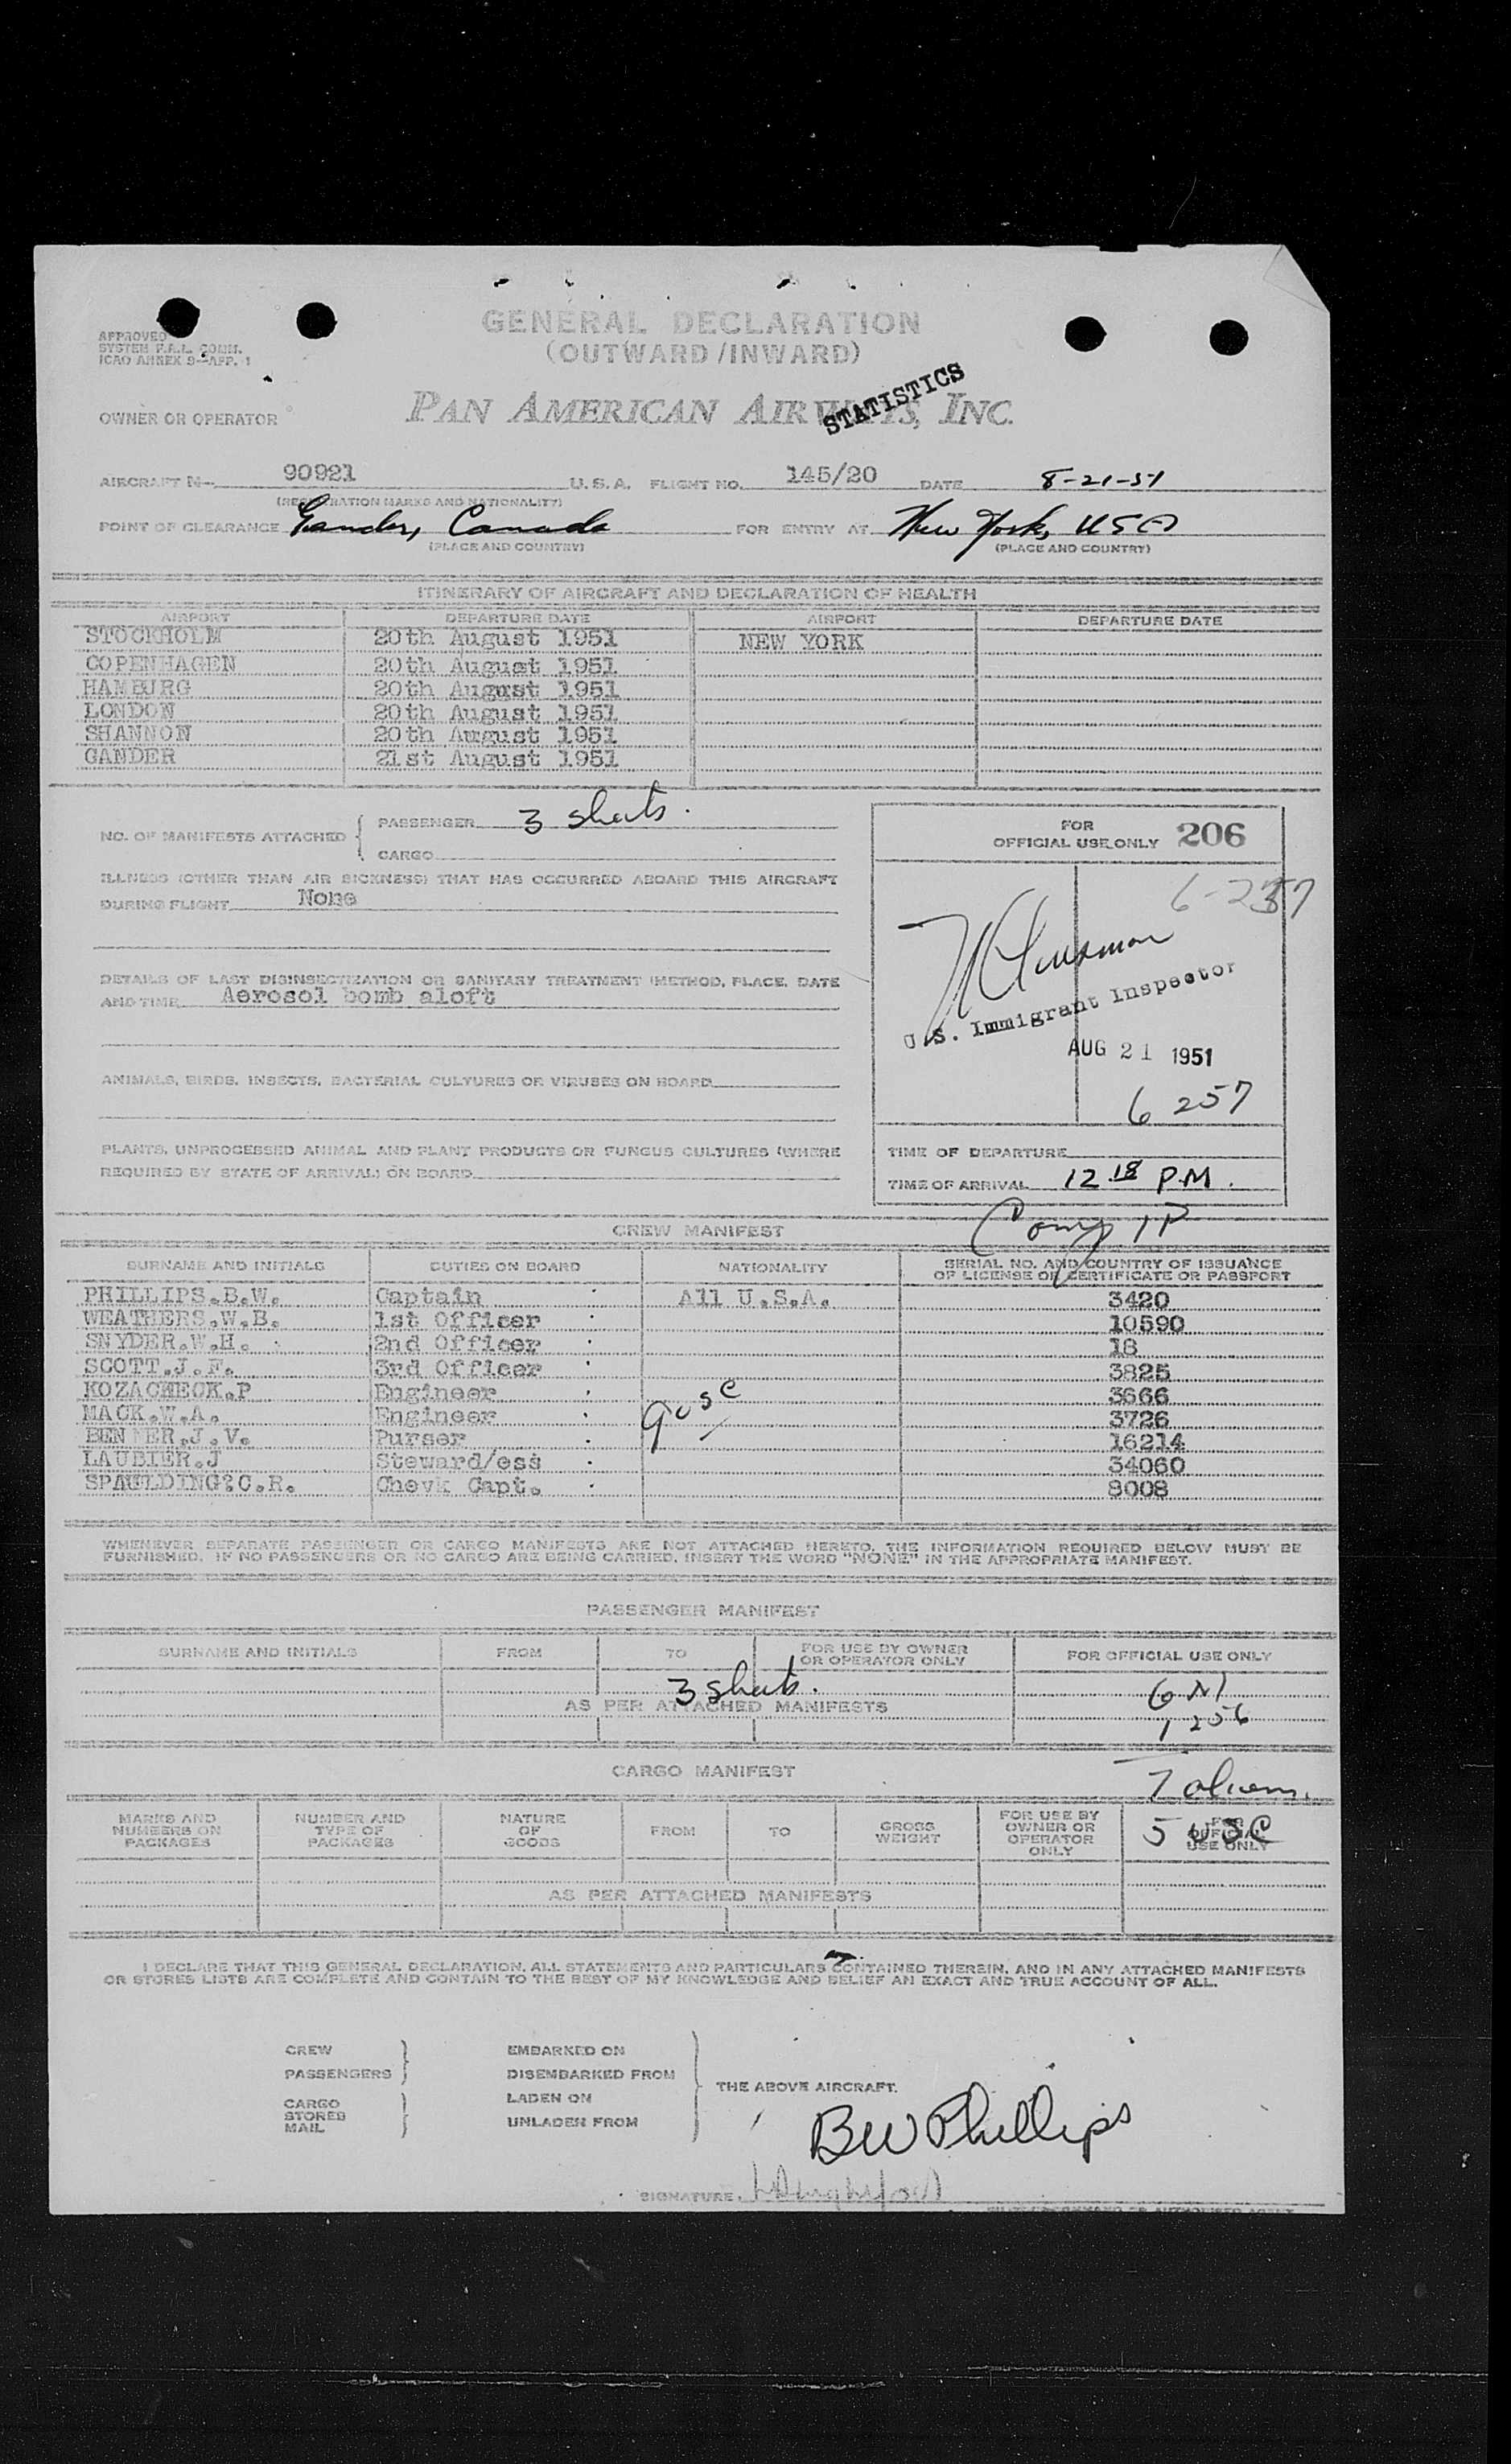 GENERAL DECLARATION
(OUTWARD/INWARD)
APPROVED
SYSTEM F.A.L. COMM.
ICAO ANNEX 9—APP. 1
STATISTICS
OWNER OR OPERATOR PAN AMERICAN AIRWAYS, INC.
AIRCRAFT N- 90921 U.S.A. FLIGHT NO. 145/20 DATE 8-21-51
(REGISTRATION MARKS AND NATIONALITY)
POINT OF CLEARANCE Gander, Canada FOR ENTRY AT New York, USA
(PLACE AND COUNTRY) (PLACE AND COUNTRY)
ITINERARY OF AIRCRAFT AND DECLARATION OF HEALTH
AIRPORT DEPARTURE DATE AIRPORT DEPARTURE DATE
STOCKHOLM 20th August 1951 NEW YORK
COPENHAGEN 20th August 1951
HAMBURG 20th August 1951
LONDON 20th August 1951
SHANNON 20th August 1951
GANDER 21st August 1951
NO. OF MANIFESTS ATTACHED { PASSENGER 3 sheets.
CARGO
ILLNESS (OTHER THAN AIR SICKNESS) THAT HAS OCCURRED ABOARD THIS AIRCRAFT
DURING FLIGHT None
DETAILS OF LAST DISINSECTIZATION OR SANITARY TREATMENT (METHOD, PLACE, DATE
AND TIME) Aerosol bomb aloft
ANIMALS, BIRDS, INSECTS, BACTERIAL CULTURES OR VIRUSES ON BOARD
PLANTS, UNPROCESSED ANIMAL AND PLANT PRODUCTS OR FUNGUS CULTURES (WHERE
REQUIRED BY STATE OF ARRIVAL) ON BOARD
FOR
OFFICIAL USE ONLY 206
U.S. Immigrant Inspector
AUG 21 1951
6 257
TIME OF DEPARTURE
TIME OF ARRIVAL 12 18 P.M.
CREW MANIFEST
SURNAME AND INITIALS DUTIES ON BOARD NATIONALITY SERIAL NO. AND COUNTRY OF ISSUANCE
OF LICENSE OR CERTIFICATE OR PASSPORT
PHILLIPS.B.W. Captain : All U.S.A. 3420
WEATHERS.W.B. 1st Officer : 10590
SNYDER.W.H. 2nd Officer : 18
SCOTT.J.F. 3rd Officer : 3825
KOZACHECK.P Engineer : 3666
MACK.W.A. Engineer : 3726
BENNER.J.V. Purser : 16214
LAUBIER.J Steward/ess : 34060
SPAULDING?C.R. Chevk Capt. : 8008
9 USC
WHENEVER SEPARATE PASSENGER OR CARGO MANIFESTS ARE NOT ATTACHED HERETO, THE INFORMATION REQUIRED BELOW MUST BE
FURNISHED. IF NO PASSENGERS OR NO CARGO ARE BEING CARRIED, INSERT THE WORD "NONE" IN THE APPROPRIATE MANIFEST.
PASSENGER MANIFEST
SURNAME AND INITIALS FROM TO FOR USE BY OWNER
OR OPERATOR ONLY FOR OFFICIAL USE ONLY
3 sheets.
AS PER ATTACHED MANIFESTS
CARGO MANIFEST
7 aliens.
5 USC
MARKS AND
NUMBERS ON
PACKAGES NUMBER AND
TYPE OF
PACKAGES NATURE
OF
GOODS FROM TO GROSS
WEIGHT FOR USE BY
OWNER OR
OPERATOR
ONLY FOR
OFFICIAL
USE ONLY
AS PER ATTACHED MANIFESTS
I DECLARE THAT THIS GENERAL DECLARATION, ALL STATEMENTS AND PARTICULARS CONTAINED THEREIN, AND IN ANY ATTACHED MANIFESTS
OR STORES LISTS ARE COMPLETE AND CONTAIN TO THE BEST OF MY KNOWLEDGE AND BELIEF AN EXACT AND TRUE ACCOUNT OF ALL.
CREW EMBARKED ON
PASSENGERS DISEMBARKED FROM
THE ABOVE AIRCRAFT.
CARGO LADEN ON
STORES
MAIL UNLADEN FROM
BW Phillips
SIGNATURE